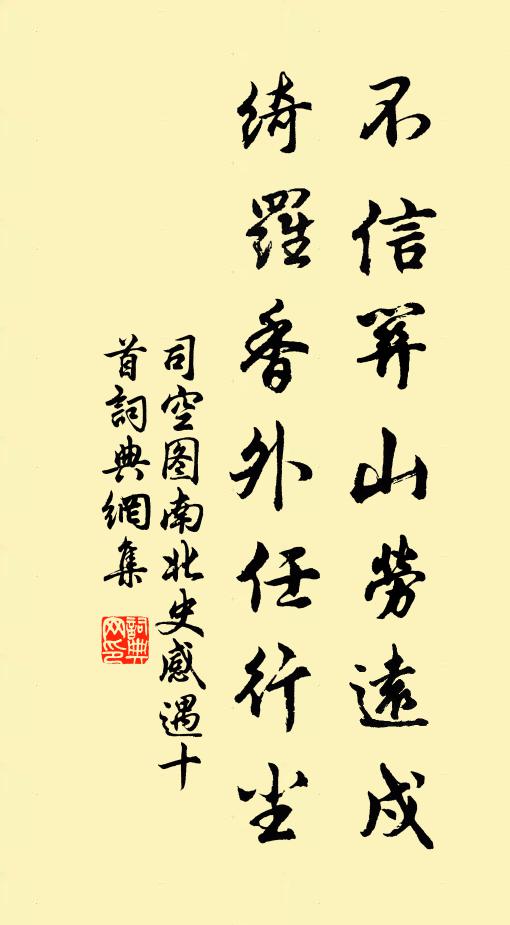 不信關山勞遠戍
綺羅香外任行尘
司空图南北史感遇十
首詞典網集
詞典
网印